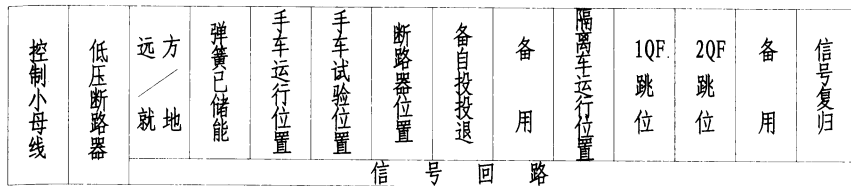 控制小母线
低压断路器
远方/就地
弹簧已储能
手车运行位置
手车试验位置
断路器位置
备自投投退
备用
隔离车运行位置
1QF跳位
2QF跳位
备用
信号复归
信号回路